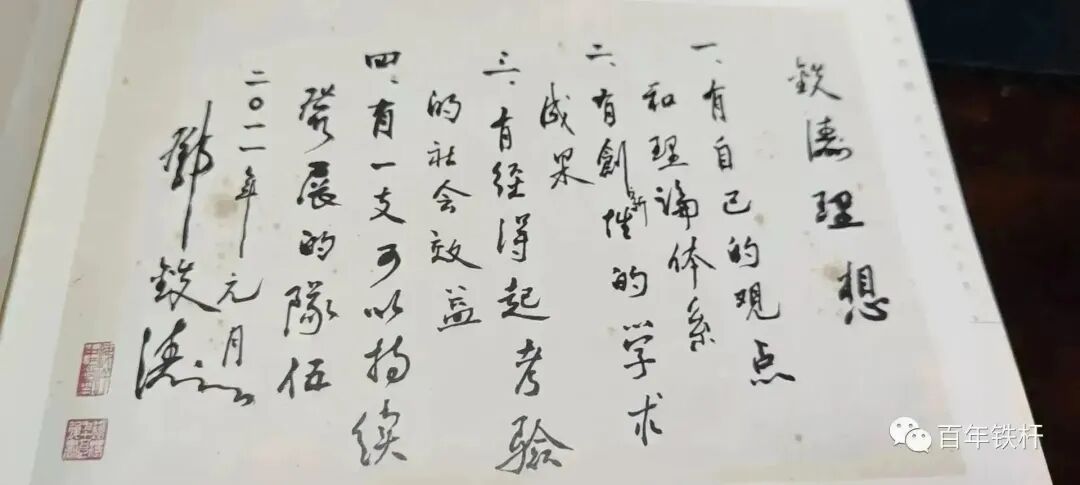 鉄濤理想
一、有自己的观点
和理論体系
二、有創新性的学术
成果
三、有经得起考驗
的社会效益
四、有一支可以持续
發展的隊伍
二〇一一年元月
鄧鉄濤
百年铁杆